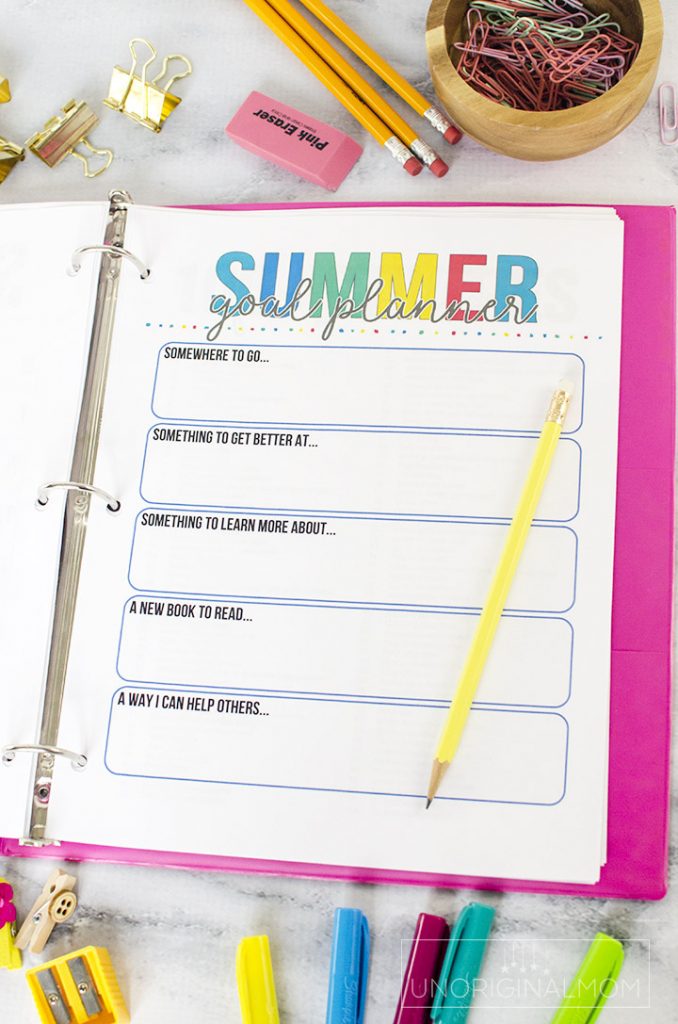 Pink Eraser
SUMMER
goal planner
SOMEWHERE TO GO...
SOMETHING TO GET BETTER AT...
SOMETHING TO LEARN MORE ABOUT...
A NEW BOOK TO READ...
A WAY I CAN HELP OTHERS...
Sharpie
UNORIGINALMOM